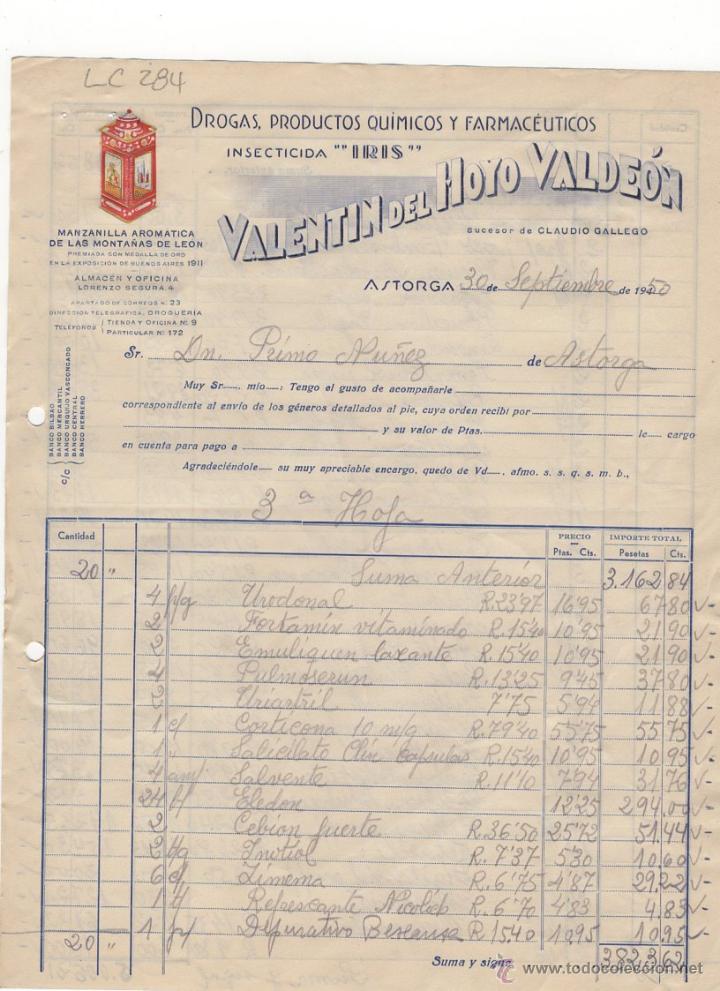 LC 284
DROGAS, PRODUCTOS QUÍMICOS Y FARMACÉUTICOS
INSECTICIDA ""IRIS"
VALENTIN DEL HOYO VALDEÓN
sucesor de CLAUDIO GALLEGO
MANZANILLA AROMATICA
DE LAS MONTAÑAS DE LEÓN
PREMIADA CON MEDALLA DE ORO
EN LA EXPOSICIÓN DE BUENOS AIRES 1911
ALMACEN Y OFICINA
LORENZO SEGURA, 4
APARTADO DE CORREOS N. 23
DIRECCIÓN TELEGRÁFICA, DROGUERIA
TELÉFONOS { TIENDA Y OFICINA Nº 9
PARTICULAR Nº 172
ASTORGA 30 de Septiembre de 1950
Sr. Dn. Primo Nuñez de Astorga
Muy Sr. mío: Tengo el gusto de acompañarle
correspondiente al envío de los géneros detallados al pie, cuya orden recibí por
y su valor de Ptas. le cargo
en cuenta para pago a
Agradeciéndole su muy apreciable encargo, quedo de Vd., afmo. s. s. q. s. m. b.,
c/c
BANCO BILBAO
BANCO MERCANTIL
BANCO URQUIJO VASCONGADO
BANCO CENTRAL
BANCO HERRERO
3ª Hoja
Cantidad PRECIO IMPORTE TOTAL
Ptas. Cts. Pesetas Cts.
20 " Suma Anterior 3.162 84
4 f/g Urodonal R.23'97 16'95 67 80
2 Fortamin vitaminado R.15'40 10'95 21 90
2 Emuliquen laxante R.15'40 10'95 21 90
4 Pulmoserun R.13'25 9'45 37 80
2 Uriartril 7'75 5'94 11 88
1 c/ Corticona 10 m/g R.79'40 55'75 55 75
1 " Salicilato Clin capsulas R.15'40 10'95 10 95
4 amp. Salvente R.11'10 7'94 31 76
24 b/ Eledon 12'25 294 00
2 Cebion fuerte R.36'50 25'72 51 44
2 Initiol R.7'37 5'30 10 60
6 c/ Limema R.6'75 4'87 29 22
1 Refrescante R.6'70 4'83 4 83
20 " 1 Depurativo R 15.40 10'95 10 95
Suma y sigue 3.823 62
www.todocoleccion.net